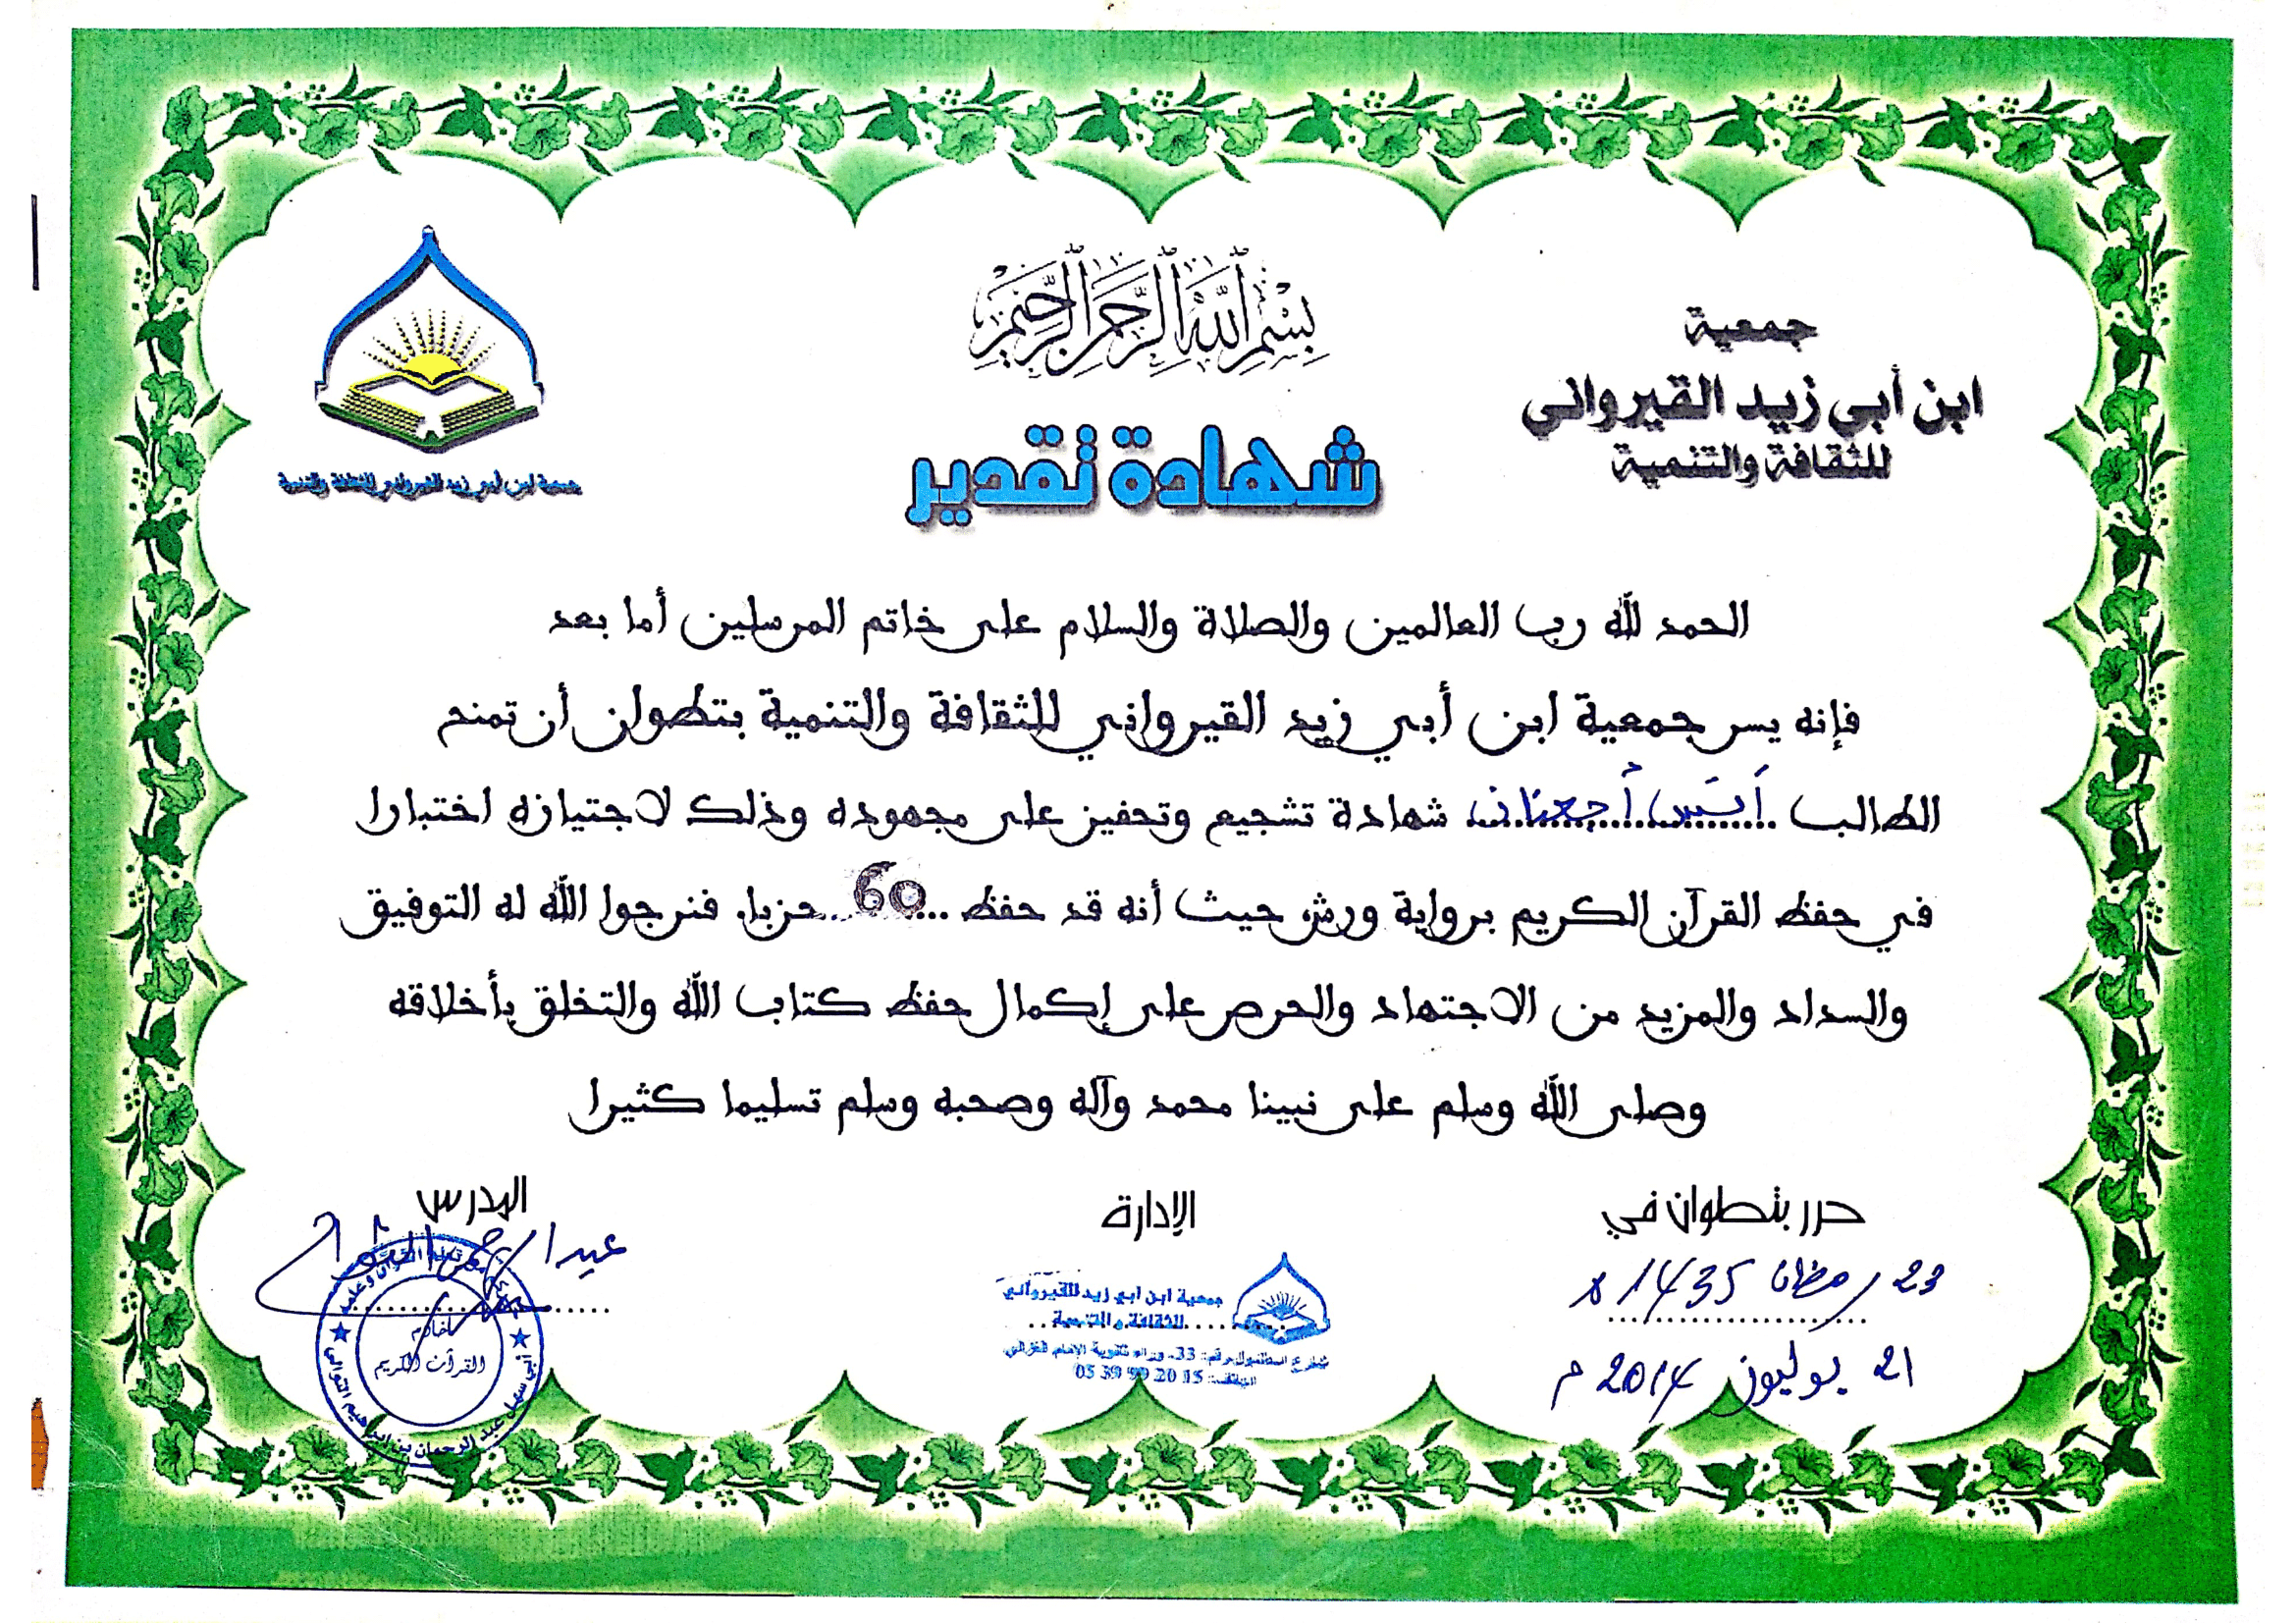 بسم الله الرحمن الرحيم
جمعية
ابن أبي زيد القيرواني
للثقافة والتنمية
جمعية ابن أبي زيد القيرواني للثقافة والتنمية
شهادة تقدير
الحمد لله رب العالمين والصلاة والسلام على خاتم المرسلين أما بعد
فإنه يسر جمعية ابن أبي زيد القيرواني للثقافة والتنمية بتطوان أن تمنح
الطالب شهادة تشجيع وتحفيز على مجهوده وذلك لاجتيازه اختبارا
في حفظ القرآن الكريم برواية ورش حيث أنه قد حفظ ...60... حزبا، فنرجوا الله له التوفيق
والسداد والمزيد من الاجتهاد والحرص على إكمال حفظ كتاب الله والتخلق بأخلاقه
وصلى الله وسلم على نبينا محمد وآله وصحبه وسلم تسليما كثيرا
حرر بتطوان في
23 رمضان 1435 ه
21 يوليوز 2014 م
الإدارة
جمعية ابن ابي زيد القيرواني
للثقافة و التنمية
رقم: 33، وراء ثانوية الامام الغزالي
05 39 99 20 15
المدرس
القرآن الكريم
أبي سهل عبد الرحمان بن ابراهيم